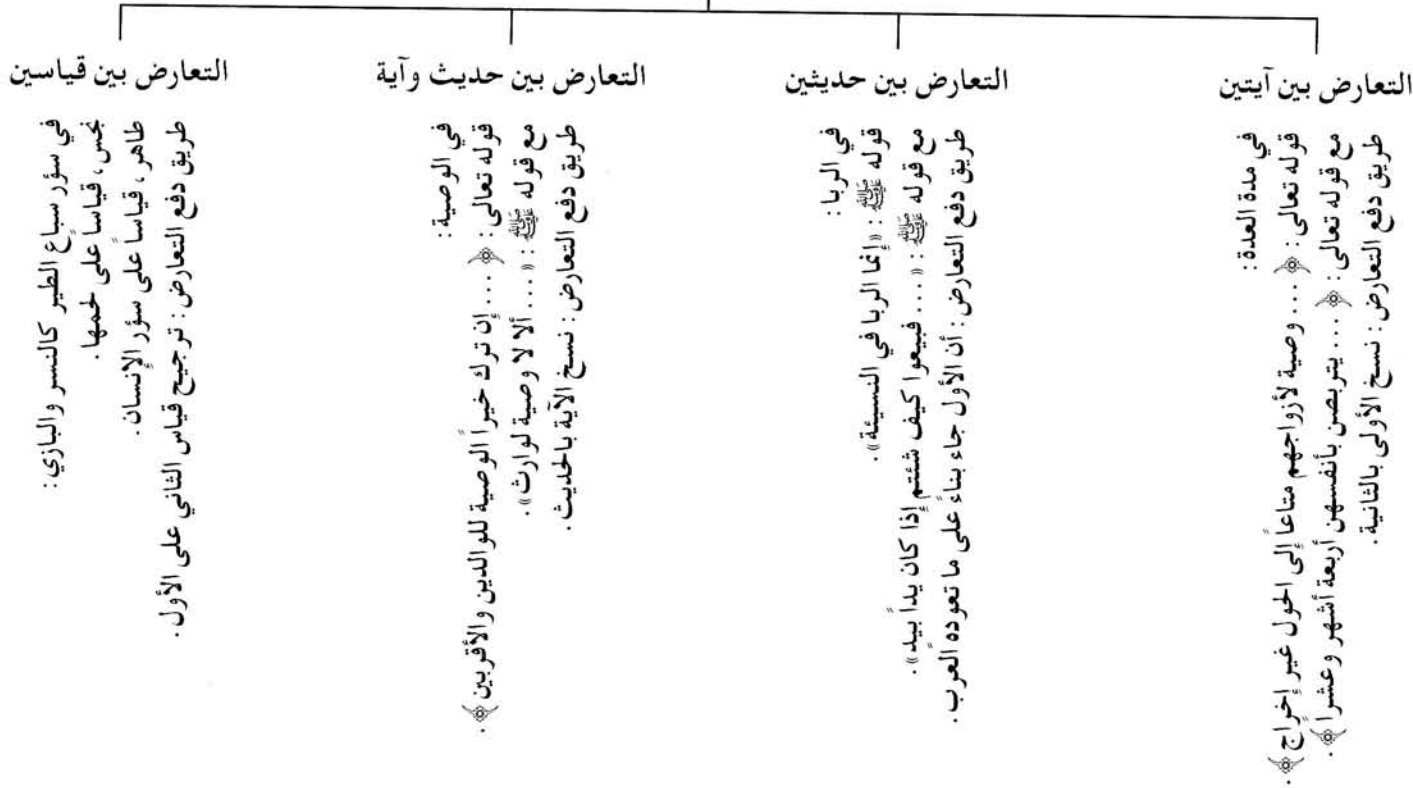 التعارض بين آيتين
في مدة العدة :
قوله تعالى : ﴿ ... وصية لأزواجهم متاعاً إلى الحول غير إخراج ﴾ .
مع قوله تعالى : ﴿ ... يتربصن بأنفسهن أربعة أشهر وعشراً ﴾ .
طريق دفع التعارض : نسخ الأولى بالثانية .
التعارض بين حديثين
في الربا :
قوله ﷺ : « إنما الربا في النسيئة » .
مع قوله ﷺ : « ... فبيعوا كيف شئتم إذا كان يداً بيد » .
طريق دفع التعارض : أن الأول جاء بناءً على ما تعوده العرب .
التعارض بين حديث وآية
في الوصية :
قوله تعالى : ﴿ ... إن ترك خيراً الوصية للوالدين والأقربين ﴾ .
مع قوله ﷺ : « ... ألا لا وصية لوارث » .
طريق دفع التعارض : نسخ الآية بالحديث .
التعارض بين قياسين
في سؤر سباع الطير كالنسر والبازي :
نجس ، قياساً على لحمها .
طاهر ، قياساً على سؤر الإنسان .
طريق دفع التعارض : ترجيح قياس الثاني على الأول .